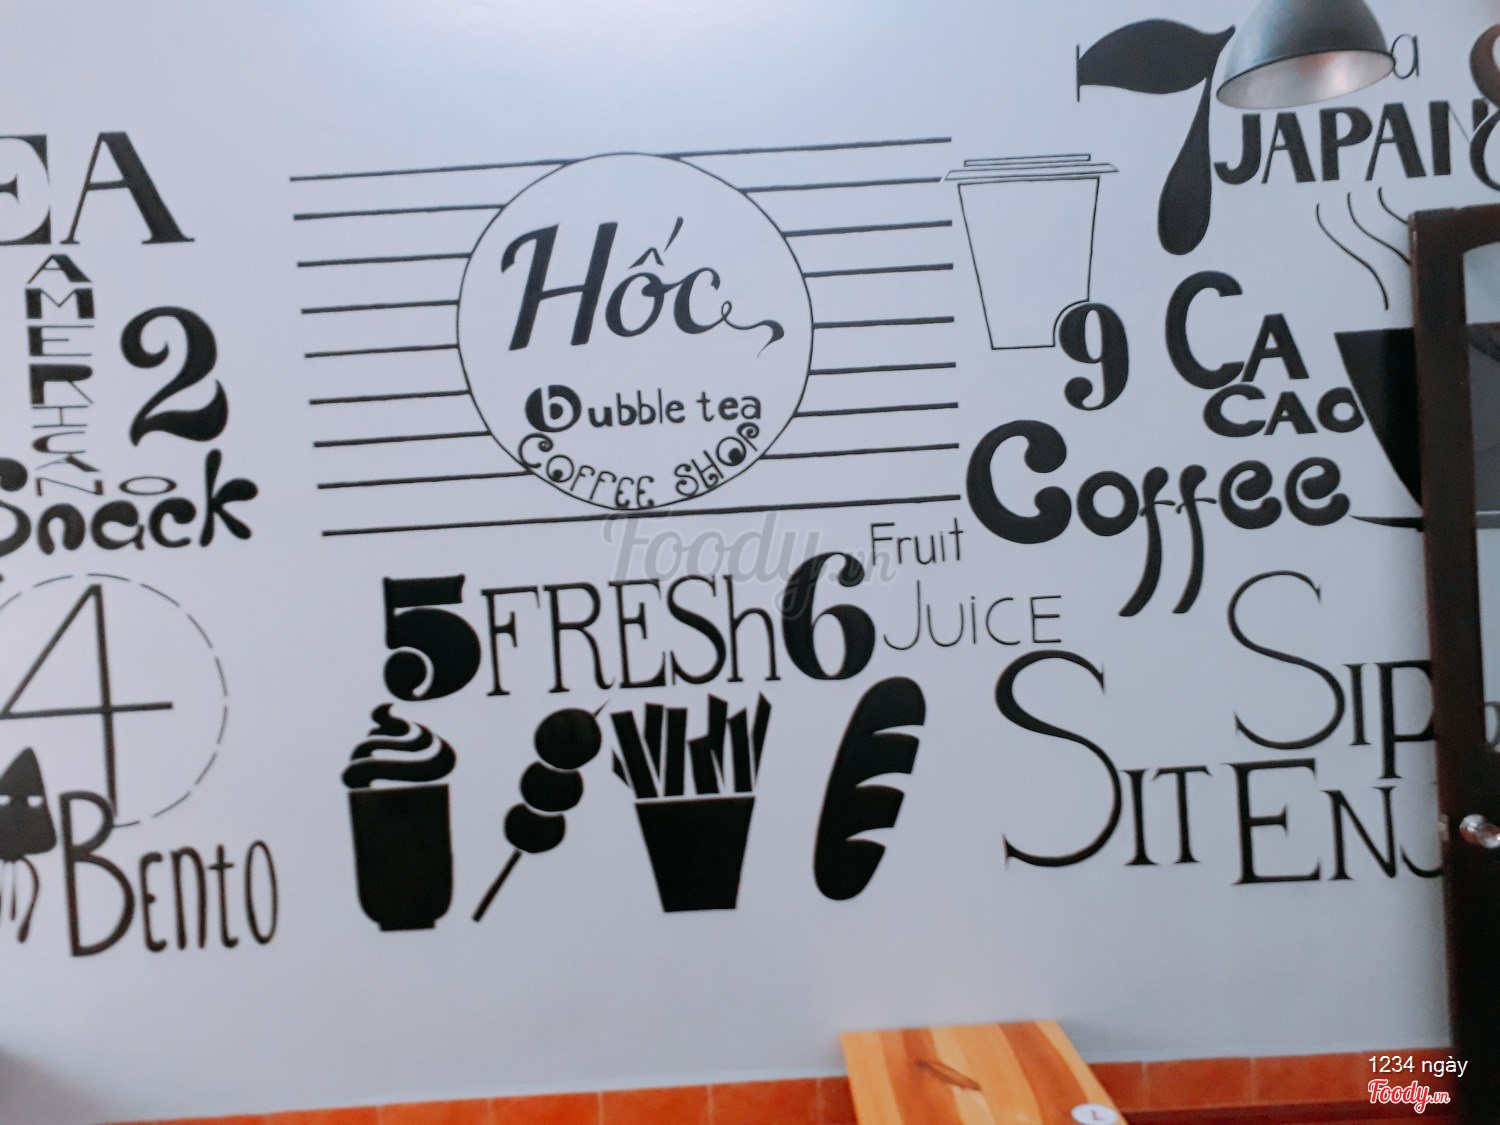 EA
AMERICANO
2
Snack
4
Bento
Hốc
bubble tea
COFFEE SHOP
5 FRESh
6 Fruit
JuiCE
7
a
JAPAN
8
9 CA
CAO
Coffee
SIP
SIT
Foody.vn
1234 ngày
Foody.vn